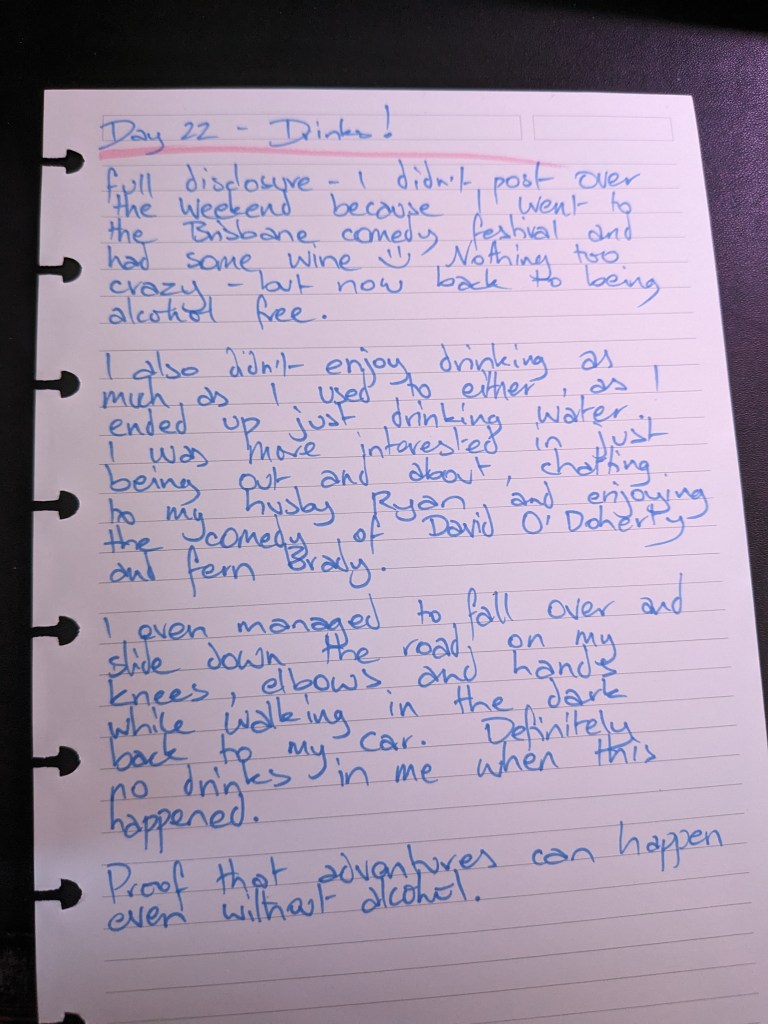 Day 22 - Drinks!
full disclosure - I didn't post over
the weekend because I went to
the Brisbane comedy festival and
had some wine :) Nothing too
crazy - but now back to being
alcohol free.
I also didn't enjoy drinking as
much as I used to either, as I
ended up just drinking water.
I was more interested in just
being out and about, chatting
to my husby Ryan and enjoying
the comedy of David O'Doherty
and fern Brady.
I even managed to fall over and
slide down the road on my
knees, elbows and hands
while walking in the dark
back to my car. Definitely
no drinks in me when this
happened.
Proof that adventures can happen
even without alcohol.